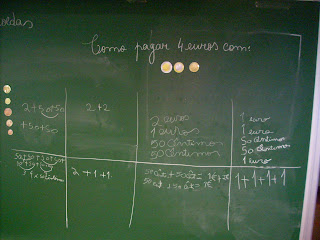 edas
Como pagar 4 euros com:
2+50+50
+50+50
2+2
2 euros
1 euro
50 cêntimos
50 cêntimos
1 euro
1 euro
50 cêntimos
50 cêntimos
1 euro
50+50+50+50+
2+1+1
1+1+1+1